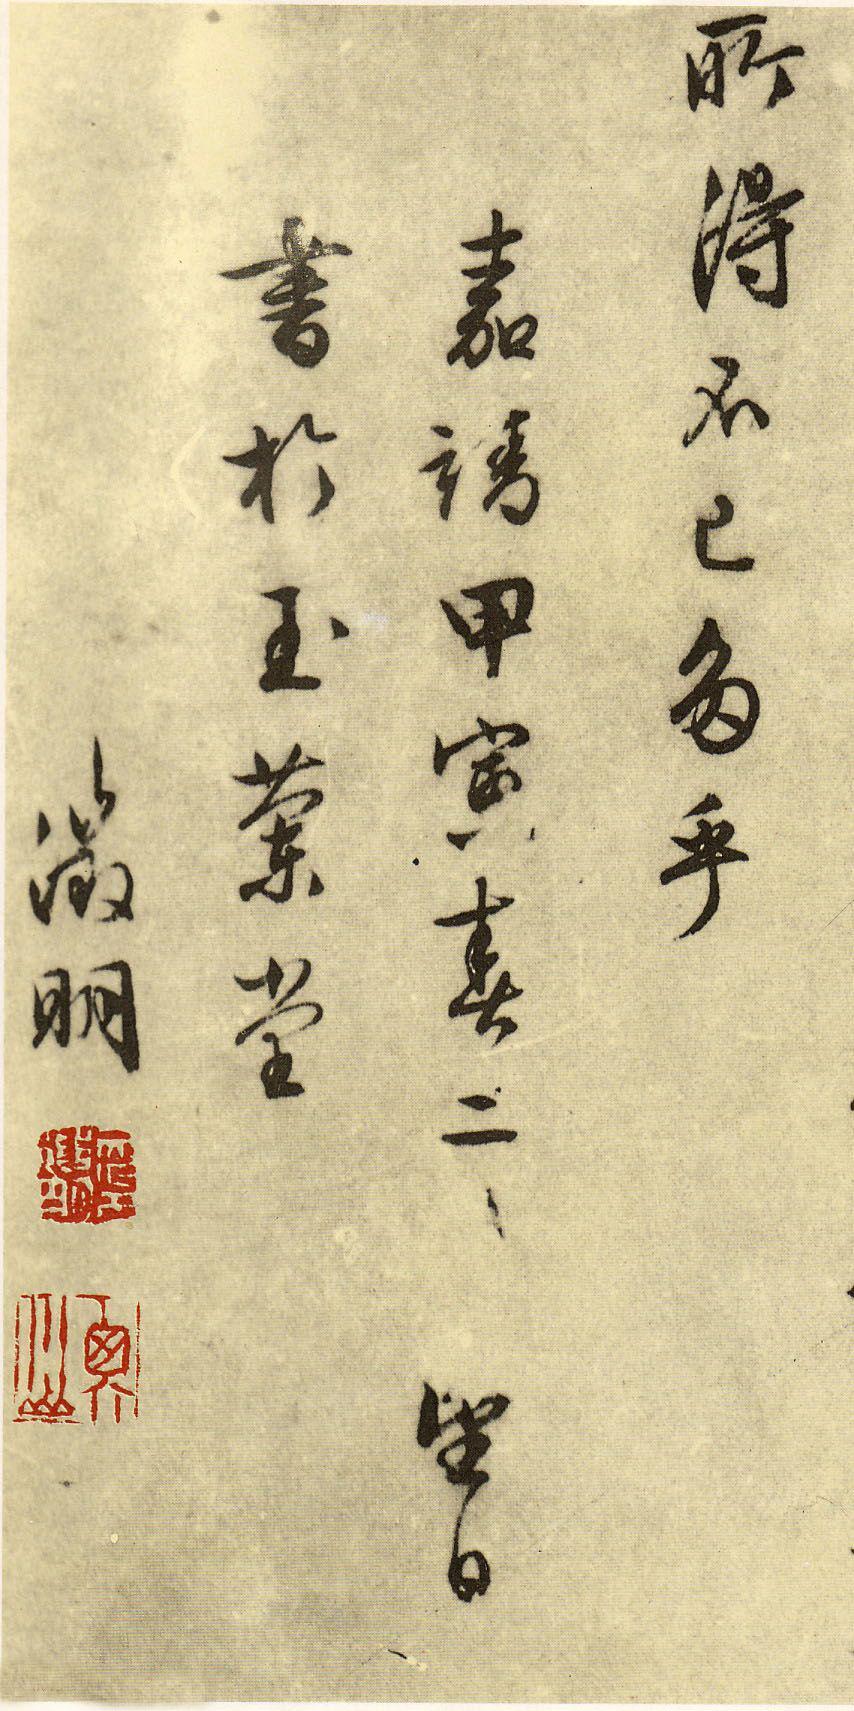 所得不已多乎
嘉靖甲寅春二 望日
書於玉蘭堂
徵明